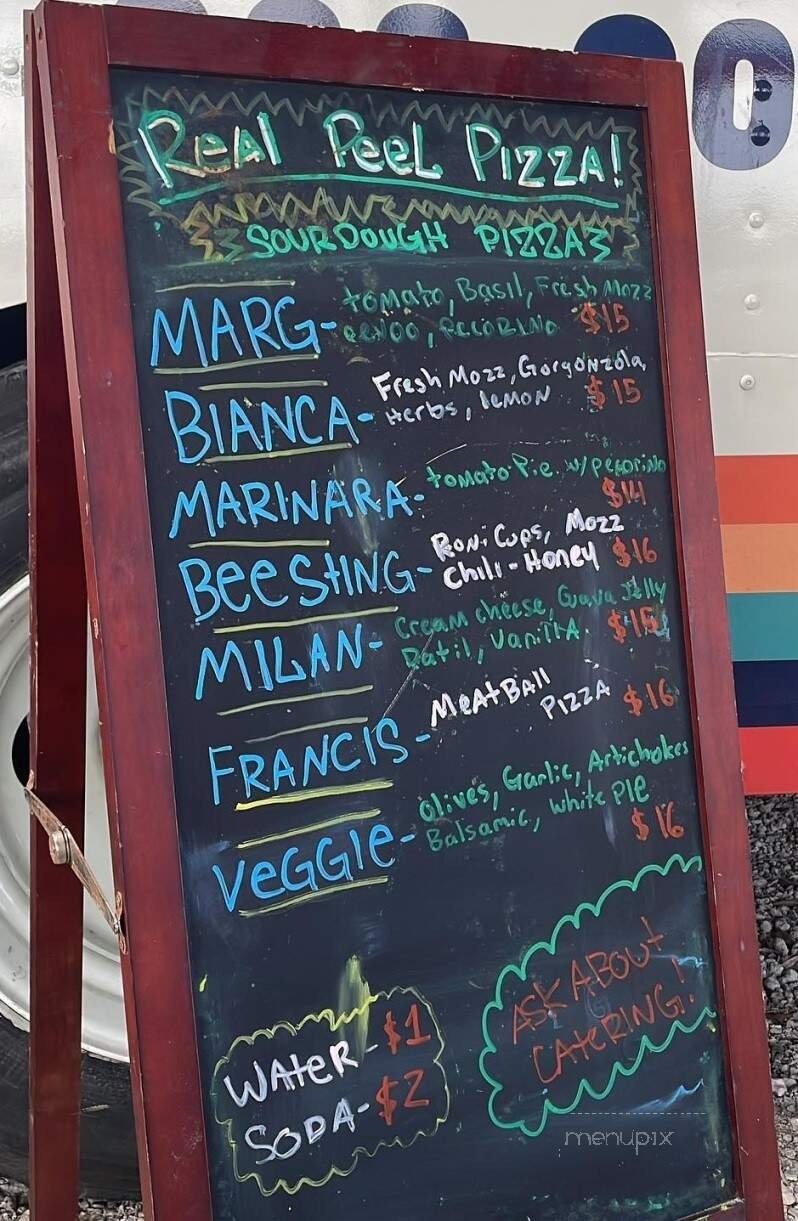 Real Peel Pizza!
SOURDOUGH PIZZA
MARG- tomato, Basil, Fresh Mozz
EEVOO, PECORINO $15
BIANCA- Fresh Mozz, Gorgonzola,
Herbs, lemon $15
MARINARA- tomato Pie w/ pecorino
$14
Bee StING- Roni Cups, Mozz
Chili-Honey $16
MILAN- Cream cheese, Guava Jelly
Datil, Vanilla $15
FRANCIS- MeatBall
Pizza $16
VeGGIe- Olives, Garlic, Artichokes
Balsamic, White PIE
$16
ASK ABOUT
CATERING!
WAteR- $1
SODA- $2
menupix